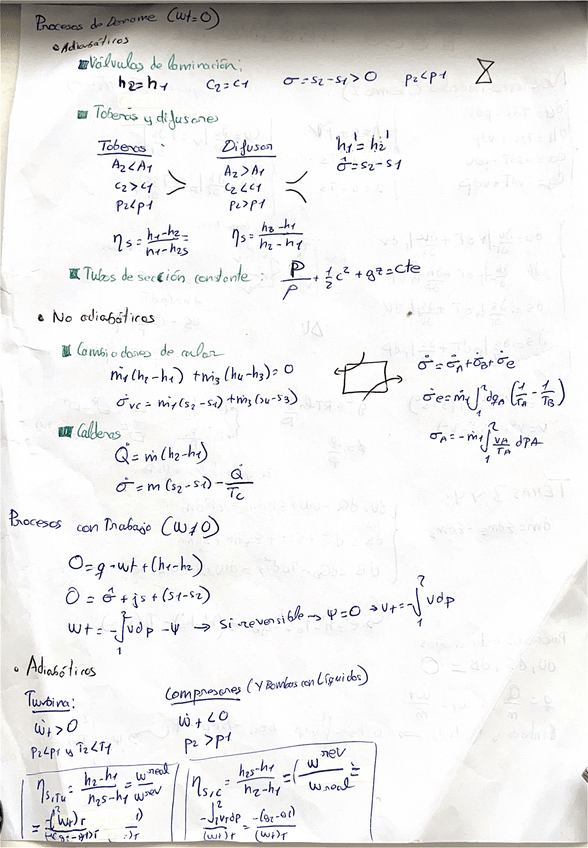 Procesos de Derrame (Wt=0)
• Adiabáticos
Válvulas de laminación:
h2=h1 c2=c1 σ=s2-s1>0 p2<p1
Toberas y difusores
Toberas Difusor h1'=h2'
A2<A1 A2>A1 σ̂=s2-s1
c2>c1 c2<c1
p2<p1 p2>p1
ηs = (h1-h2)/(h1-h2s) = ηs = (h2s-h1)/(h2-h1)
Tubos de sección constante: P/ρ + 1/2 c² + gz = cte
• No adiabáticos
Cambiadores de calor
ṁ1(h2-h1) + ṁ3(h4-h3) = 0 σ̇ = σ̇A+σ̇B+σ̇e
σ̇vc = ṁ1(s2-s1) + ṁ3(s4-s3) σ̇e = ṁ1∫₁² dqA (1/TA - 1/TB)
σA = -ṁ1∫₁² vA/TA dpA
Calderas
Q̇ = ṁ(h2-h1)
σ̇ = ṁ(s2-s1) - Q̇/Tc
Procesos con Trabajo (W≠0)
0 = q - wt + (h1-h2)
0 = σ̂ + js + (s1-s2)
wt = -∫₁² vdp - Ψ → Si reversible → Ψ=0 → wt=-∫₁² vdp
• Adiabáticos
Turbina: Compresores (Y Bombas con Líquidos)
ẇt>0 ẇt<0
p2<p1 y T2<T1 p2>p1
ηs,Tu = (h2-h1)/(h2s-h1) = w real/w rev ηs,c = (h2s-h1)/(h2-h1) = (w rev/w real) =